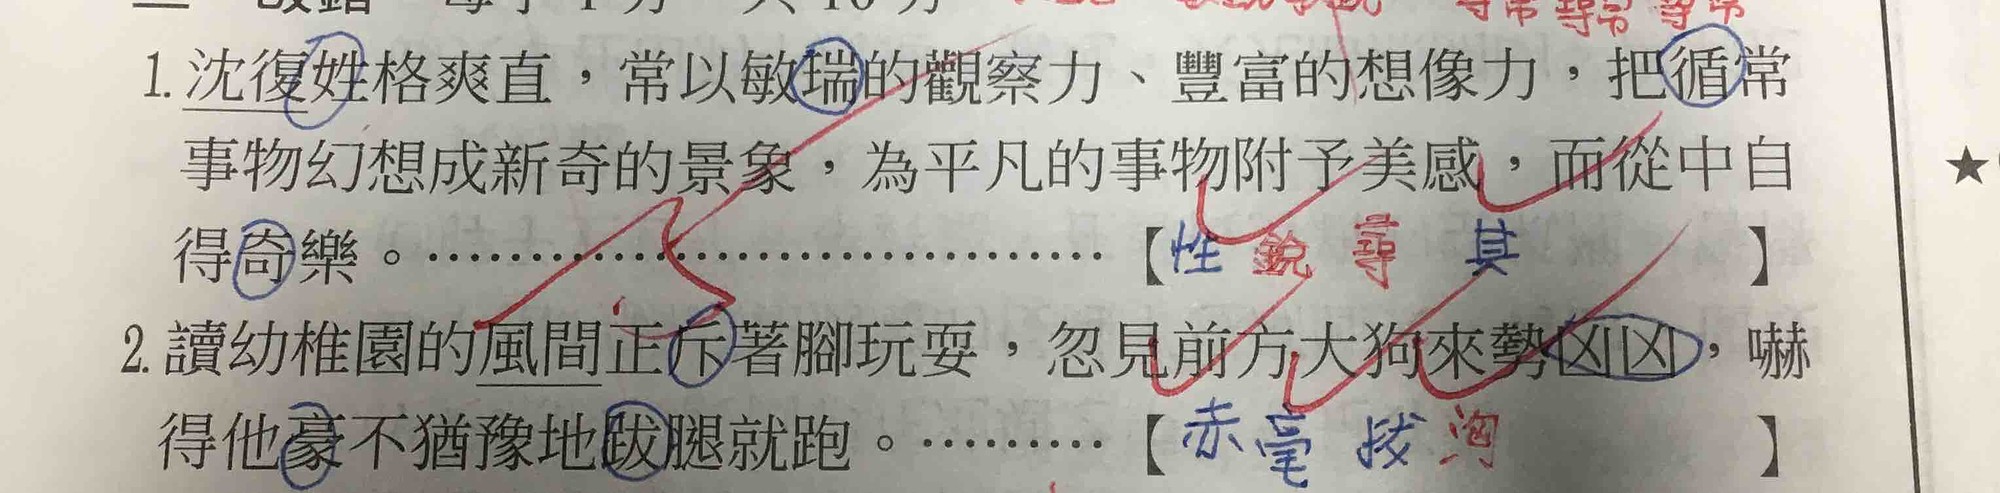 尋常 尋常 尋常
1.沈復姓格爽直，常以敏瑞的觀察力、豐富的想像力，把循常
事物幻想成新奇的景象，為平凡的事物附予美感，而從中自
得奇樂。………………………………【性 銳 尋 其 】
2.讀幼椎園的風間正斥著腳玩耍，忽見前方大狗來勢凶凶，嚇
得他豪不猶豫地跋腿就跑。………【赤 毫 拔 洶 】